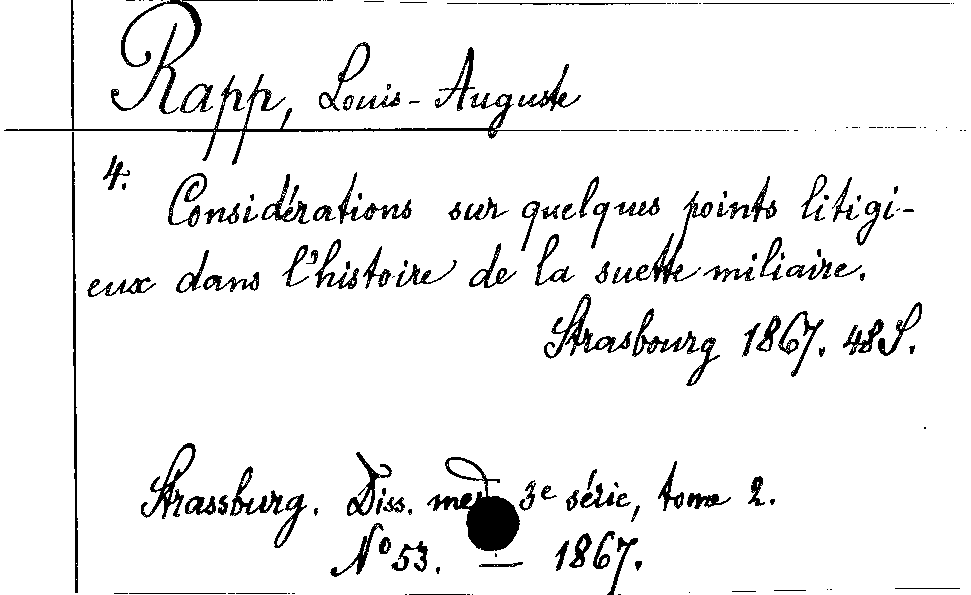 Rapp, Louis-Auguste
4.
Considérations sur quelques points litigi-
eux dans l'histoire de la suette miliaire.
Strasbourg 1867. 48 S.
Strassburg. Diss. med. 3e série, tome 2.
No 53. — 1867.